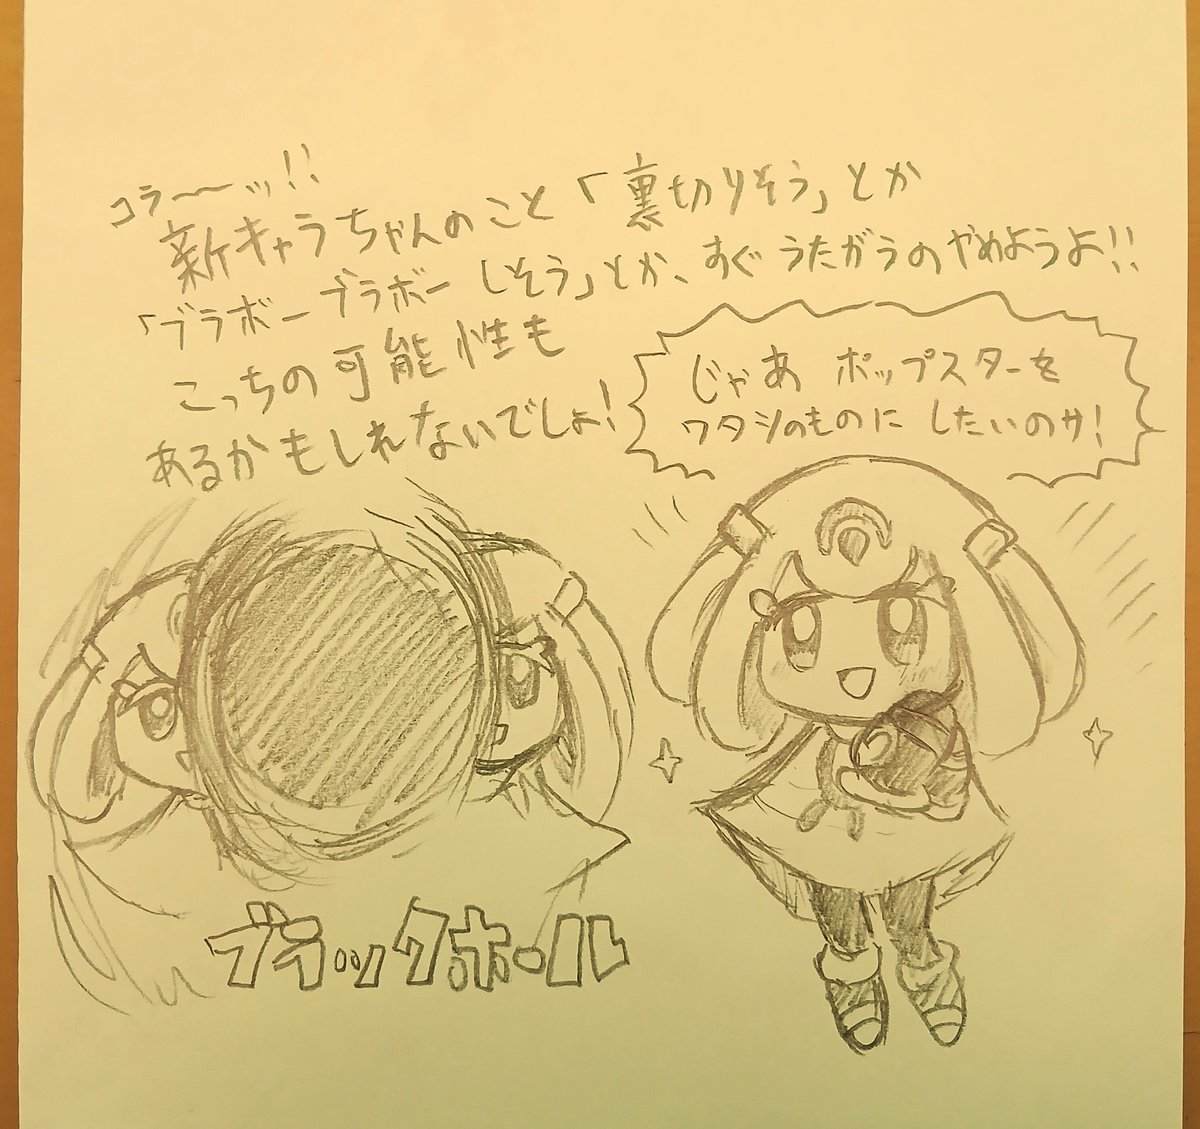 コラ〜〜ッ!!
新キャラちゃんのこと「裏切りそう」とか
「ブラボーブラボーしそう」とか、すぐうたがうのやめようよ!!
こっちの可能性も
あるかもしれないでしょ!
じゃあ ポップスターを
ワタシのものに したいのサ!
ブラックホール